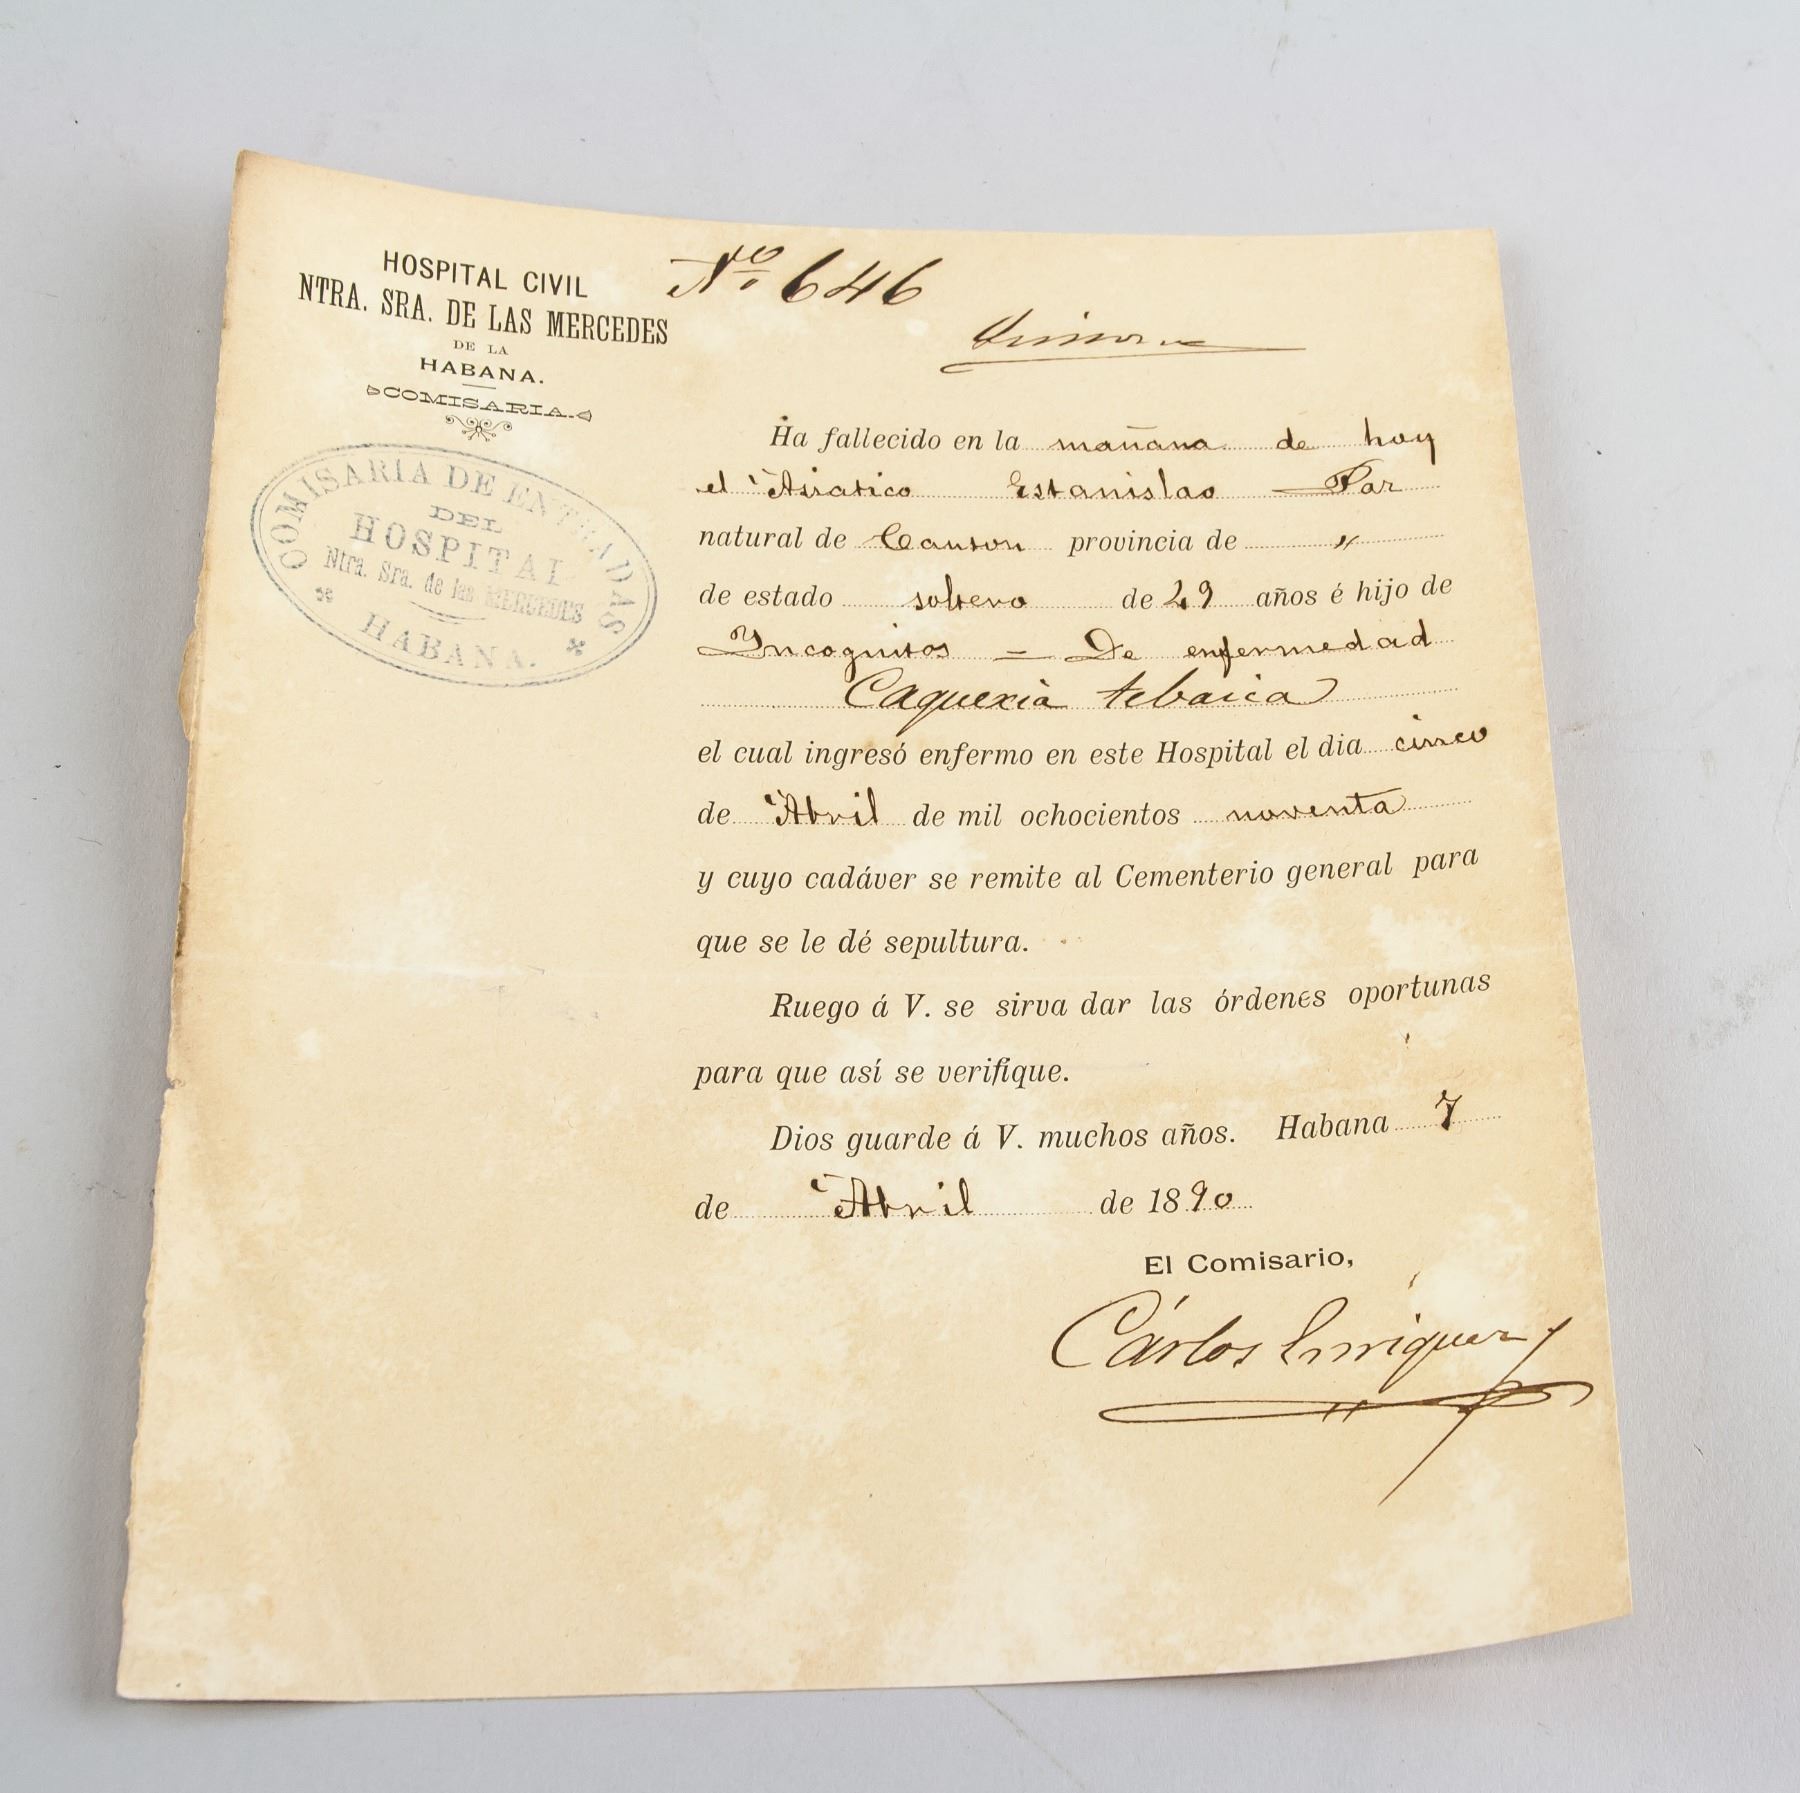 HOSPITAL CIVIL
NTRA. SRA. DE LAS MERCEDES
DE LA
HABANA.
COMISARIA.
COMISARIA DE ENTRADAS
DEL
HOSPITAL
Ntra. Sra. de las MERCEDES
HABANA.
No. 646
Ha fallecido en la mañana de hoy
el Asiatico Estanislao Par
natural de Canton provincia de "
de estado soltero de 29 años é hijo de
Incognitos = De enfermedad
Caquexia tebaica
el cual ingresó enfermo en este Hospital el dia cinco
de Abril de mil ochocientos noventa
y cuyo cadáver se remite al Cementerio general para
que se le dé sepultura.
Ruego á V. se sirva dar las órdenes oportunas
para que así se verifique.
Dios guarde á V. muchos años. Habana 7
de Abril de 1890
El Comisario,
Cárlos Enriquez